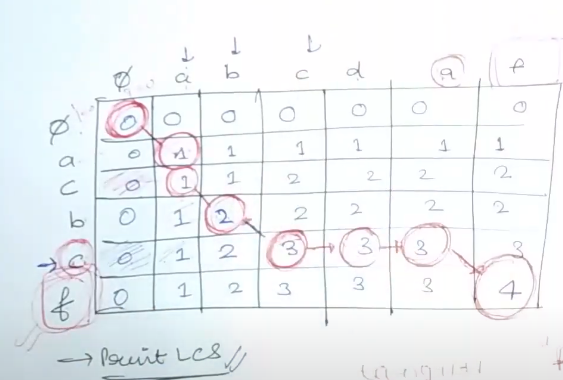 φ a b c d a f
φ 0 0 0 0 0 0 0
a 0 1 1 1 1 1 1
c 0 1 1 2 2 2 2
b 0 1 2 2 2 2 2
→ c 0 1 2 3 → 3 → 3 3
f 0 1 2 3 3 3 4
→ Print LCS